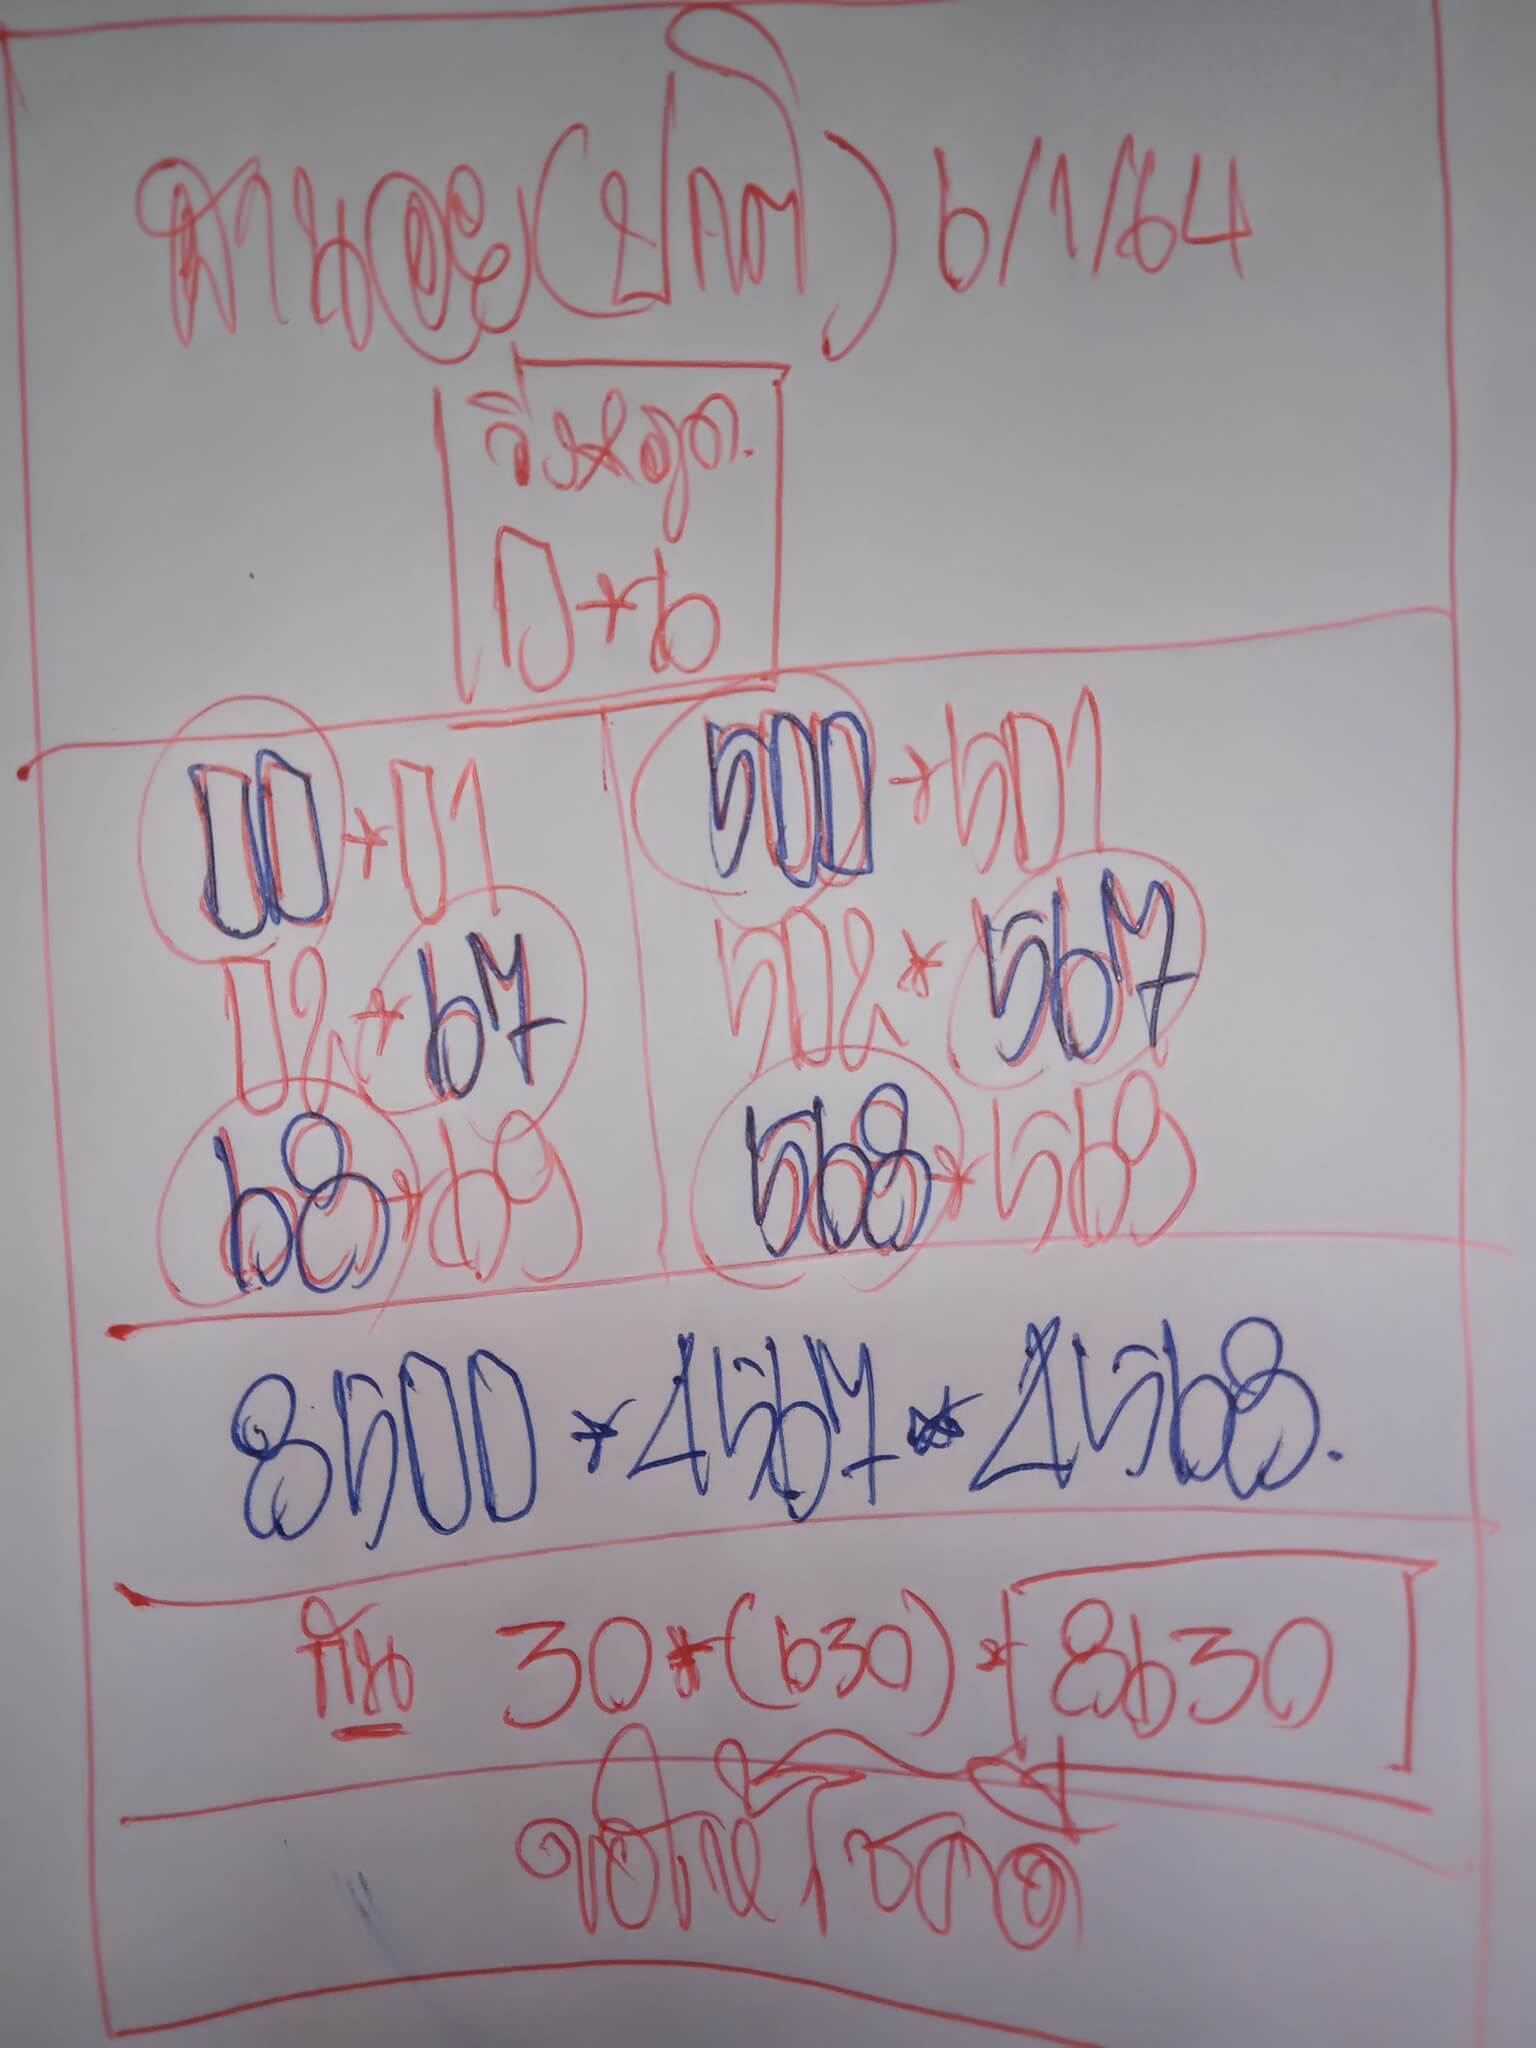 ฮานอย (ปกติ) 6/1/64
วิ่งหลุด.
0+6
00+01
02+67
68+69
500+501
502*567
568*569
8500+4567*4568.
กัน 30*(630)*8630
ขอให้โชคดี